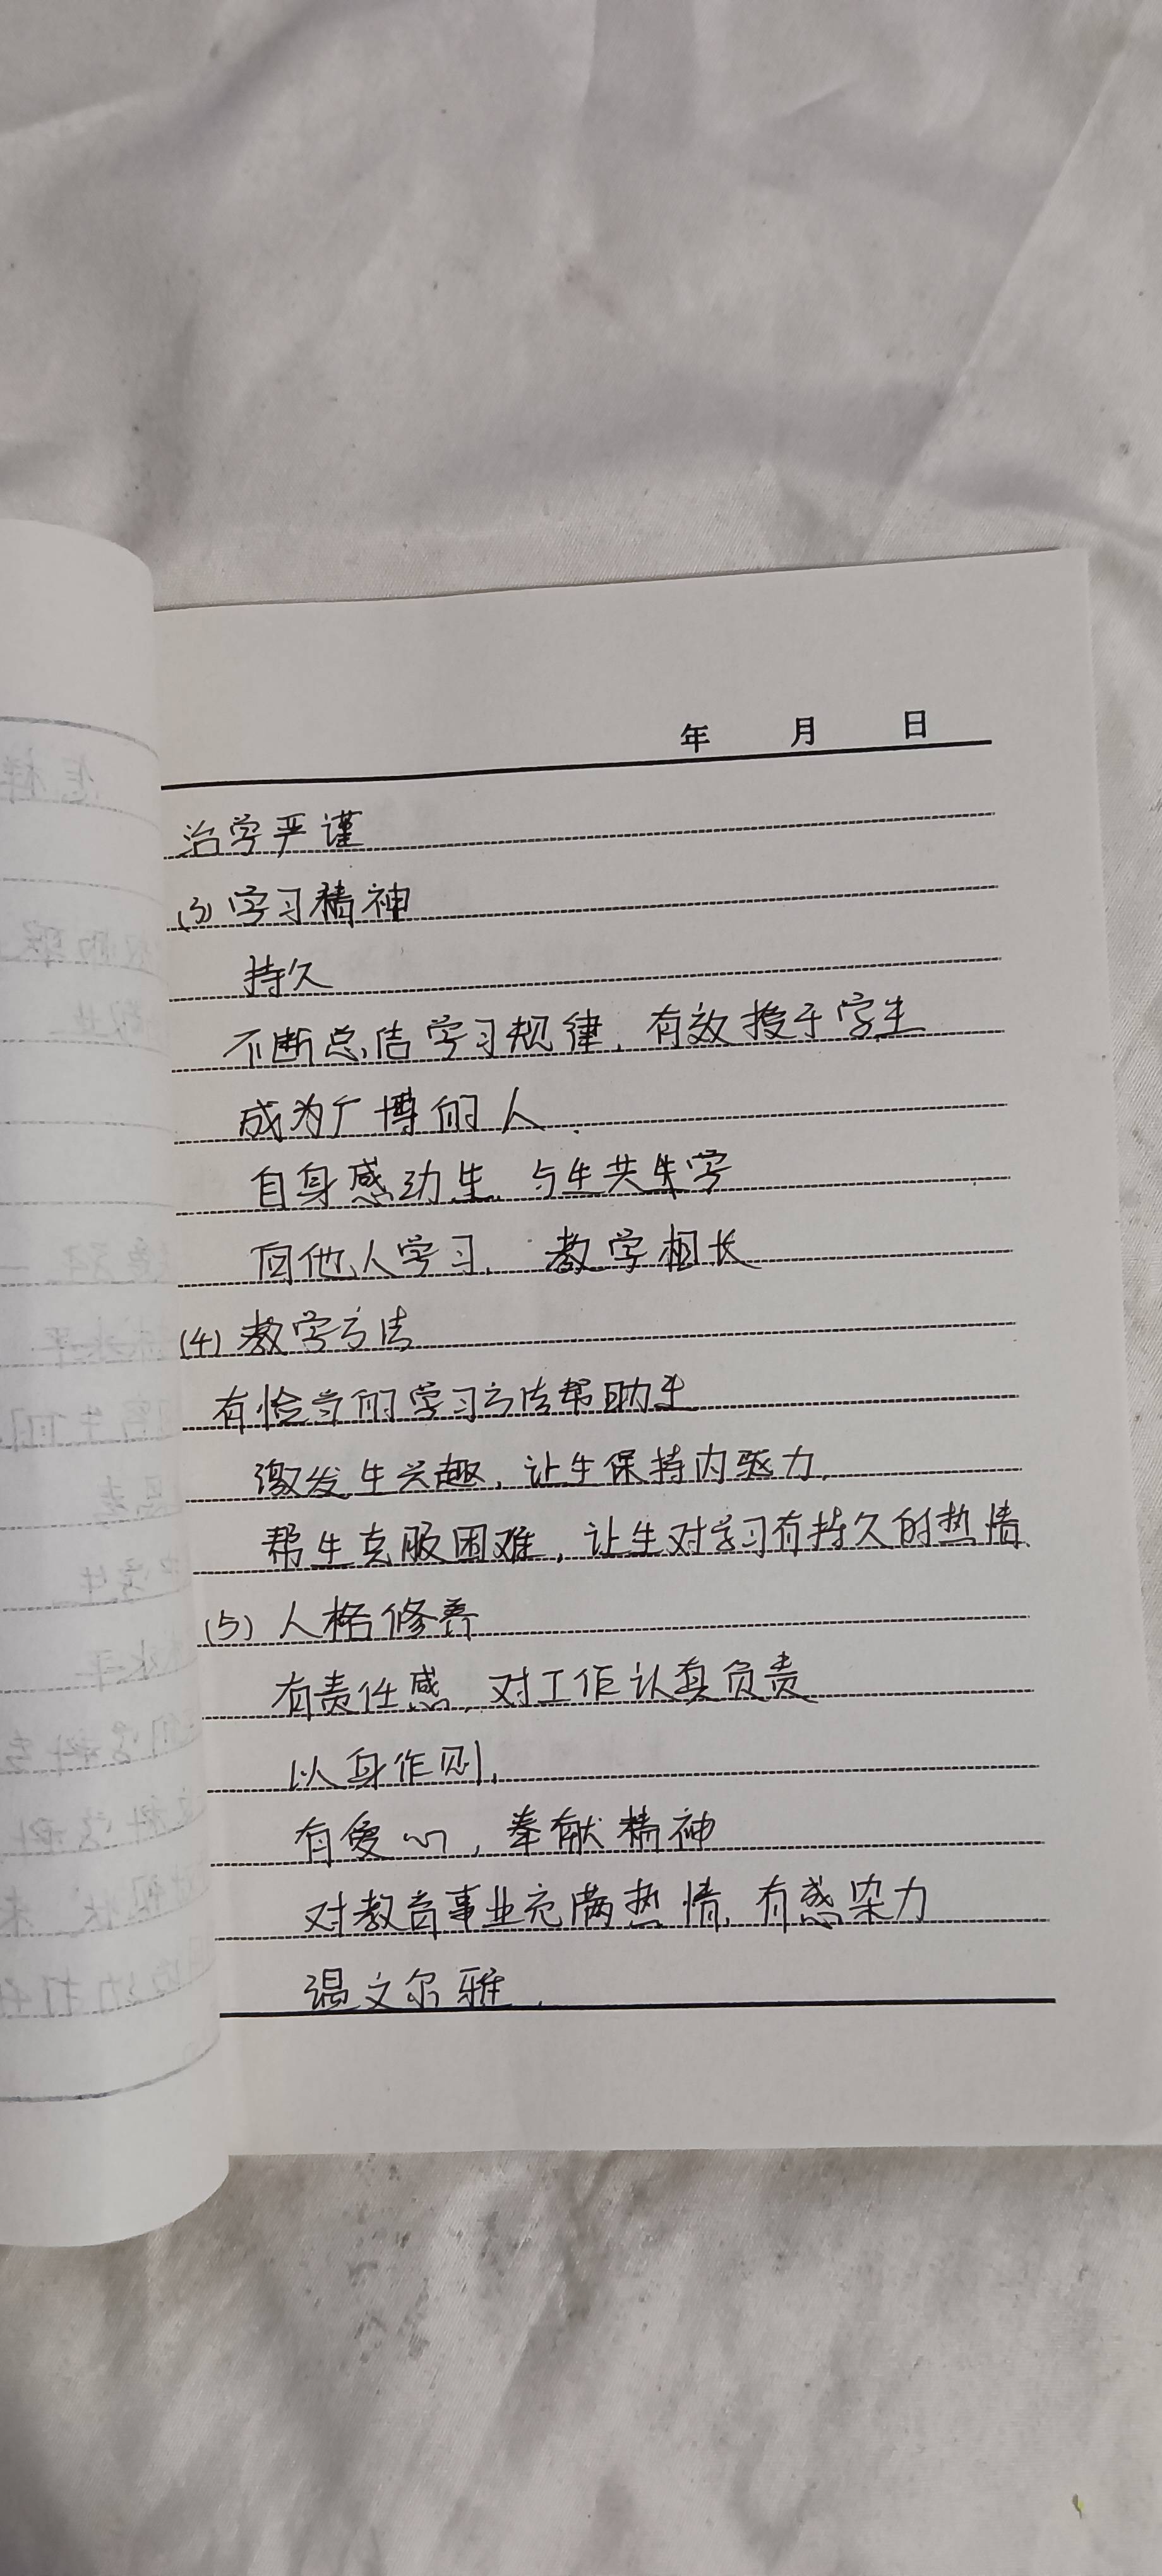 年 月 日
治学严谨
(3) 学习精神
持久
不断总结学习规律，有效授于学生
成为广博的人.
自身感动生，与生共生学
向他人学习，教学相长
(4) 教学方法
有恰当的学习方法帮助生
激发生兴趣，让生保持内驱力，
帮生克服困难，让生对学习有持久的热情、
(5) 人格修养
有责任感，对工作认真负责
以身作则，
有爱心，奉献精神
对教育事业充满热情，有感染力
温文尔雅，